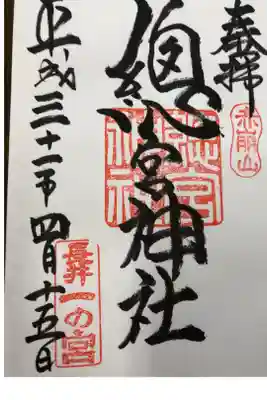 奉拝
赤崩山
總宮神社
總宮
神社
平成三十一年四月十五日
長井
一の宮